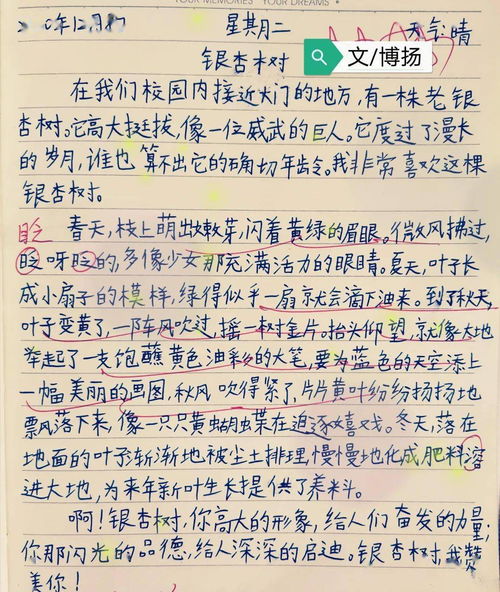 YOUR MEMORIES YOUR DREAMS
年12月 星期二 天气:晴
文/博扬
银杏树
在我们校园内接近大门的地方,有一株老银
杏树。它高大挺拔,像一位威武的巨人。它度过了漫长
的岁月,谁也算不出它的确切年龄。我非常喜欢这棵
银杏树。
春天,枝上萌出嫩芽,闪着黄绿的眉眼。微风拂过,
眨
眨呀眨的,多像少女那充满活力的眼睛。夏天,叶子长
成小扇子的模样,绿得似乎一扇就会滴下油来。到了秋天,
叶子变黄了,一阵风吹过,摇一树金片。抬头仰望,就像大地
举起了一支饱蘸黄色油彩的大笔,要为蓝色的天空添上
一幅美丽的画图,秋风吹得紧了,片片黄叶纷纷扬扬地
票风落下来,像一只只黄蝴蝶在追逐嬉戏。冬天,落在
地面的叶子渐渐地被尘土排理,慢慢地化成肥料溶
进大地,为来年新叶生长提供了养料。
啊!银杏树,你高大的形象,给人们奋发的力量;
你那闪光的品德,给人深深的启迪。银杏树,我赞
美你!